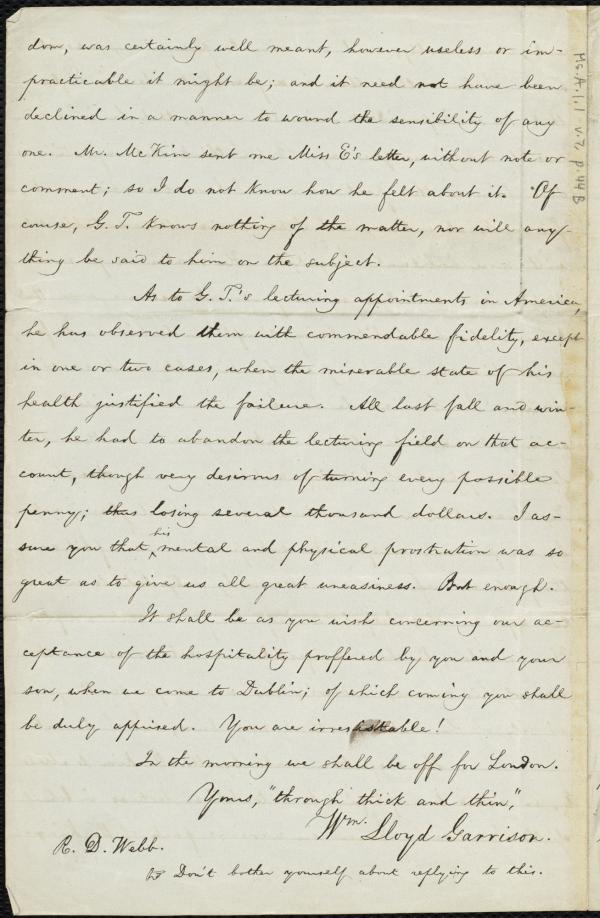 dom, was certainly well meant, however useless or im-
practicable it might be; and it need not have been
declined in a manner to wound the sensibility of any
one. Mr. McKim sent me Miss E's letter, without note or
comment; so I do not know how he felt about it. Of
course, G. T. knows nothing of the matter, nor will any-
thing be said to him on the subject.
As to G. T.'s lecturing appointments in America,
he has observed them with commendable fidelity, except
in one or two cases, when the miserable state of his
health justified the failure. All last fall and win-
ter, he had to abandon the lecturing field on that ac-
count, though very desirous of turning every possible
penny; thus losing several thousand dollars. I as-
sure you that his mental and physical prostration was so
great as to give us all great uneasiness. But enough.
It shall be as you wish concerning our ac-
ceptance of the hospitality proffered by you and your
son, when we come to Dublin; of which coming you shall
be duly apprised. You are irresistable!
In the morning we shall be off for London.
Yours, "through thick and thin,"
Wm. Lloyd Garrison.
R. D. Webb.
Don't bother yourself about replying to this.
Ms.A.1.1 v.7, p.44B